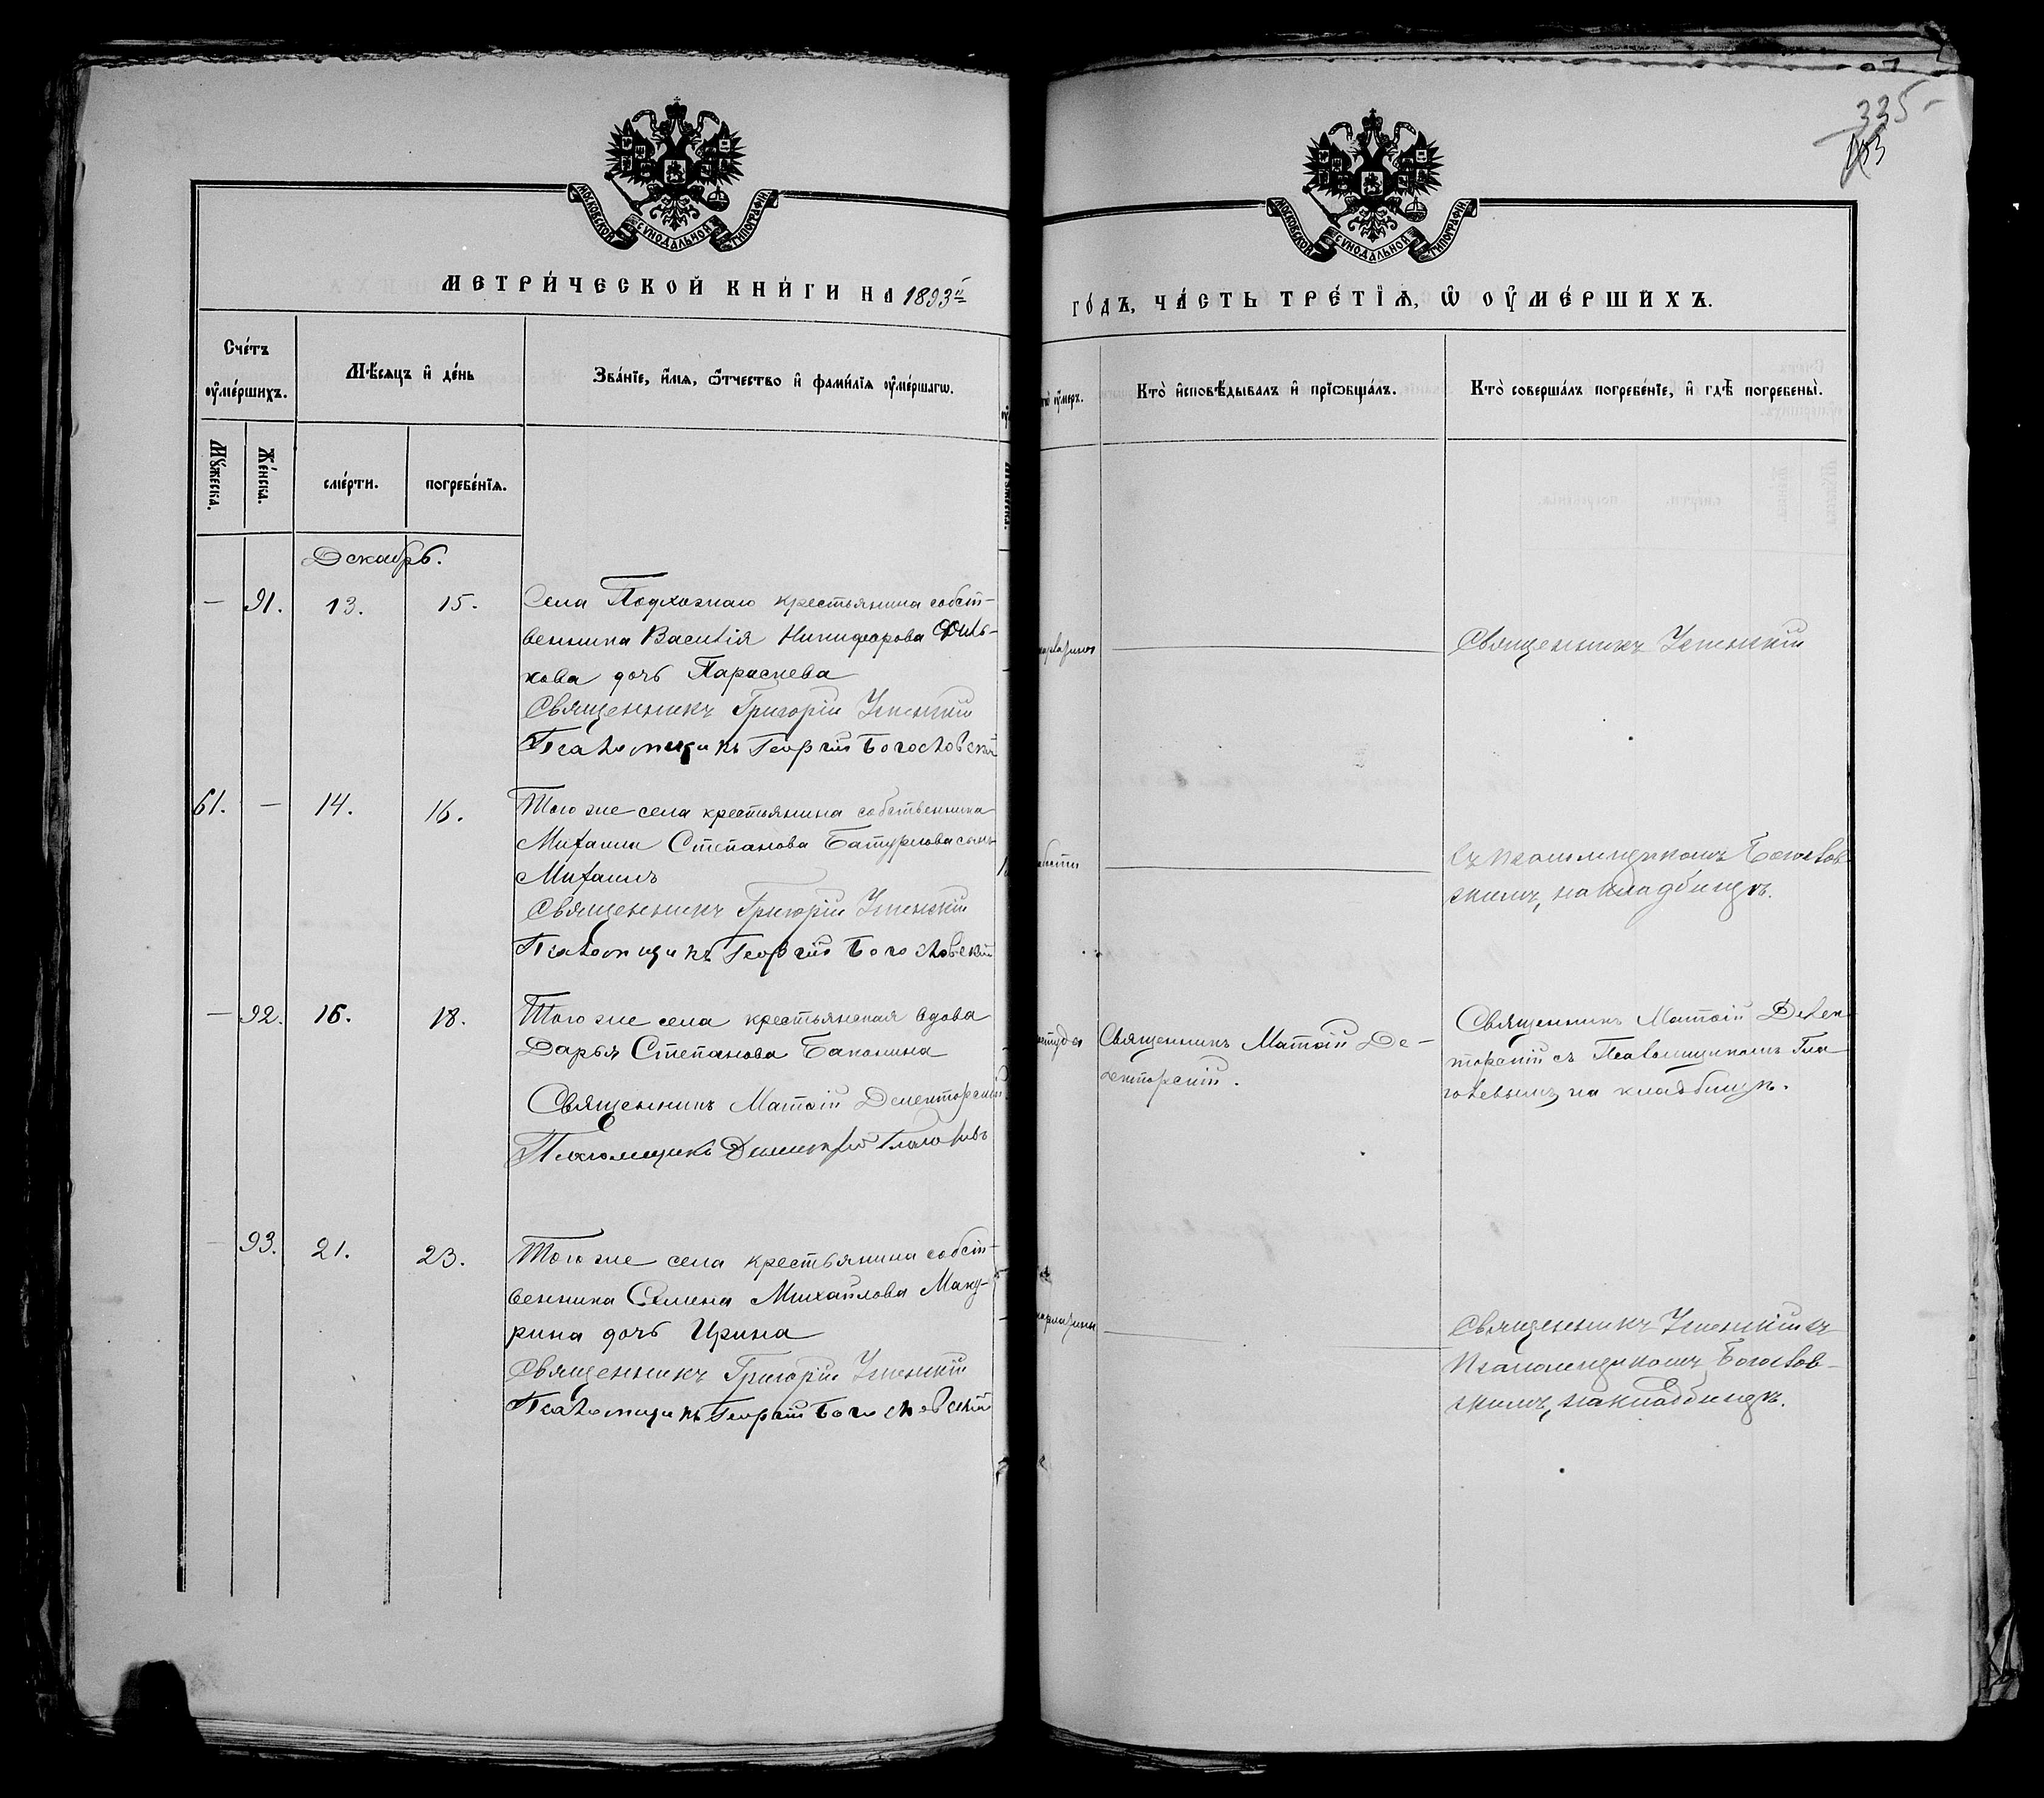 335
МОСКОВСКОЙ СѴНОДАЛЬНОЙ ТИПОГРАФІИ
МОСКОВСКОЙ СѴНОДАЛЬНОЙ ТИПОГРАФІИ
МЕТРИ́ЧЕСКОЙ КНИ́ГИ НА 1893й
ГО́ДЪ, ЧА́СТЬ ТРЕ́ТІѦ, Ѡ ОУМЕ́РШИХЪ.
Сче́тъ оумéршихъ.
Мѣ́сяцъ и де́нь
Зва́нїе, и́мѧ, ѿчество и фами́лїѧ оумéршагѡ.
Кто̀ и҆сповѣ́дывалъ и҆ прїѡбща́лъ.
Кто̀ соверша́лъ погребе́нїе, и҆ гдѣ̀ погребены̀.
Мꙋ́жеска.
Же́нска.
сме́рти.
погребе́нїѧ.
Декабрь.
— 91. 13. 15.
Села Подхожаго крестьянина собст-
венника Василія Никифорова Филь-
кова дочь Параскева
Священникъ Григорій Успенскій
Псаломщикъ Георгій Богословскій
Священникъ Успенскій
61. — 14. 16.
Того же села крестьянина собственника
Михаила Степанова Батурлова сынъ
Михаилъ
Священникъ Григорій Успенскій
Псаломщикъ Георгій Богословскій
съ псаломщикомъ Богослов-
скимъ, на кладбищѣ.
— 92. 16. 18.
Того же села крестьянская вдова
Дарья Степанова Баконина
Священникъ Матѳій Делекторскій
Псаломщикъ Димитрій Глаголевъ
Священникъ Матѳій Де-
лекторскій.
Священникъ Матѳій Делек
торскій съ Псаломщикомъ Гла
голевымъ на кладбищѣ.
— 93. 21. 23.
Того же села крестьянина собст-
венника Семена Михайлова Маку-
рина дочь Ирина
Священникъ Григорій Успенскій
Псаломщикъ Георгій Богословскій
Священникъ Успенскій съ
псаломщикомъ Богослов-
скимъ, на кладбищѣ.